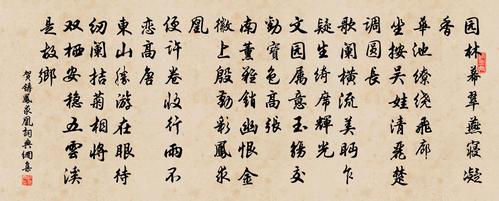 园林幂翠燕寝凝
香
华池缭绕飞廊
坐按吴娃清丽楚
调圆长
歌阑横流美眄乍
疑生绮席辉光
文园属意玉觞交
劝宝瑟高张
南薰难销幽恨金
徽上殷勤彩凤求
凰
便许卷收行雨不
恋高唐
东山胜游在眼待
纫兰撷菊相将
双栖安稳五云溪
是故乡
贺铸凤求凰词典网集